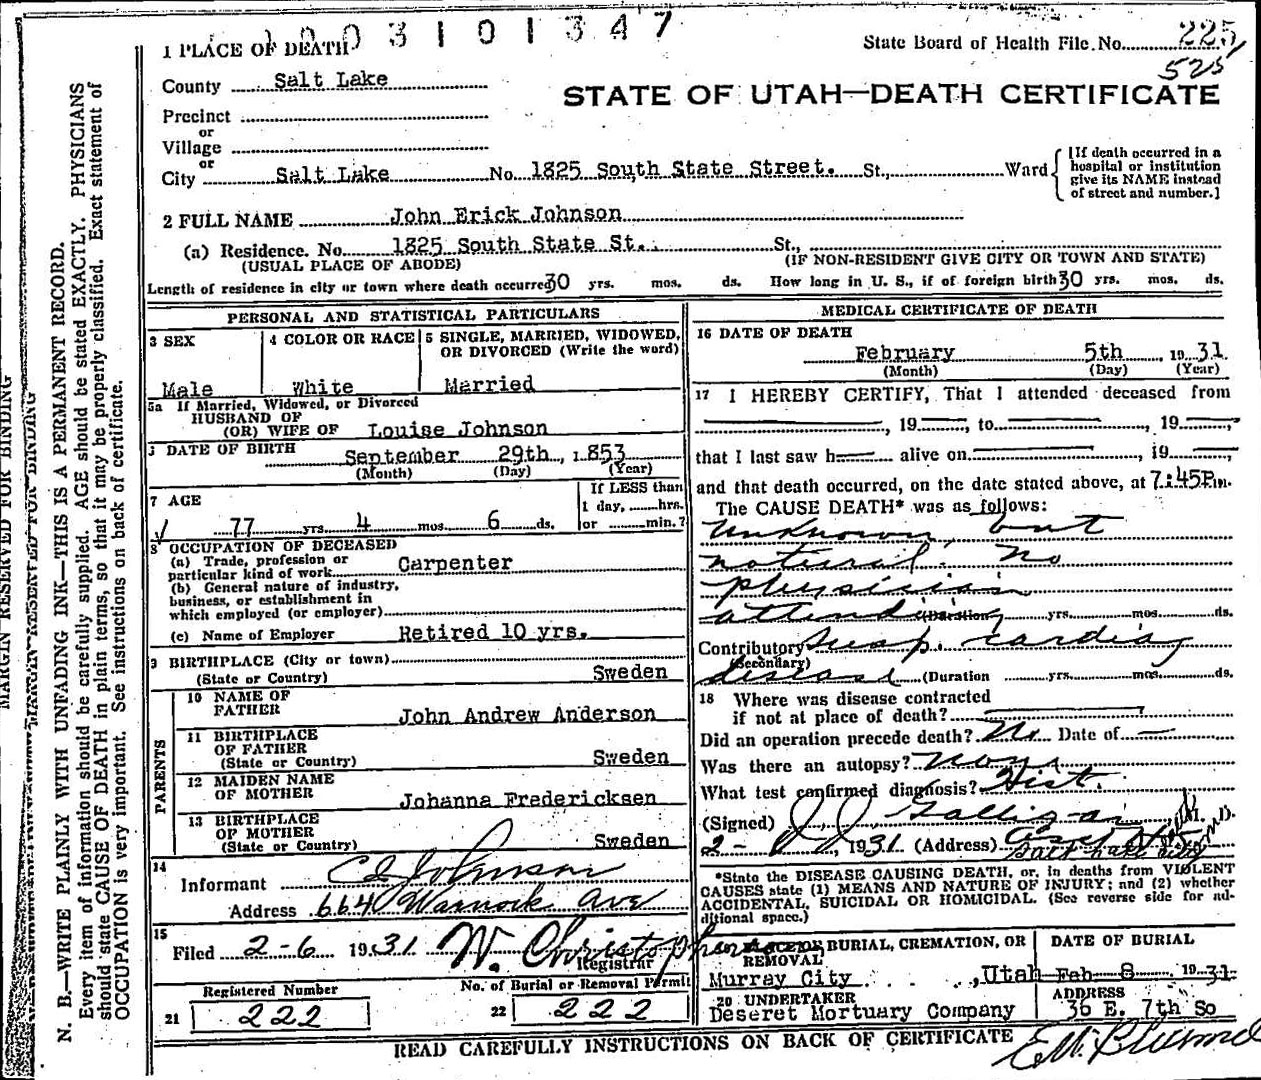 1003101347
1 PLACE OF DEATH
State Board of Health File No. 225
525
County Salt Lake
STATE OF UTAH—DEATH CERTIFICATE
Precinct
or
Village
or
City Salt Lake No. 1825 South State Street. St., Ward
[If death occurred in a
hospital or institution
give its NAME instead
of street and number.]
2 FULL NAME John Erick Johnson
(a) Residence. No. 1825 South State St. St.,
(USUAL PLACE OF ABODE) (IF NON-RESIDENT GIVE CITY OR TOWN AND STATE)
Length of residence in city or town where death occurred 30 yrs. mos. ds. How long in U. S., if of foreign birth 30 yrs. mos. ds.
PERSONAL AND STATISTICAL PARTICULARS
3 SEX
Male
4 COLOR OR RACE
White
5 SINGLE, MARRIED, WIDOWED,
OR DIVORCED (Write the word)
Married
5a If Married, Widowed, or Divorced
HUSBAND OF
(OR) WIFE OF Louise Johnson
DATE OF BIRTH
September 29th, 1853
(Month) (Day) (Year)
7 AGE
77 yrs. 4 mos. 6 ds.
If LESS than
1 day, hrs.
or min.?
8 OCCUPATION OF DECEASED
(a) Trade, profession or
particular kind of work Carpenter
(b) General nature of industry,
business, or establishment in
which employed (or employer)
(c) Name of Employer Retired 10 yrs.
9 BIRTHPLACE (City or town)
(State or Country) Sweden
PARENTS
10 NAME OF
FATHER John Andrew Anderson
11 BIRTHPLACE
OF FATHER
(State or Country) Sweden
12 MAIDEN NAME
OF MOTHER Johanna Fredericksen
13 BIRTHPLACE
OF MOTHER
(State or Country) Sweden
14
Informant C E Johnson
Address 664 Warnock Ave
15
Filed 2-6 1931 W. Christopherson
Registrar
Registered Number
21 222
No. of Burial or Removal Permit
22 222
MEDICAL CERTIFICATE OF DEATH
16 DATE OF DEATH
February 5th, 1931.
(Month) (Day) (Year)
17 I HEREBY CERTIFY, That I attended deceased from
, 19 , to , 19 ,
that I last saw h alive on , 19 ,
and that death occurred, on the date stated above, at 7:45P.m.
The CAUSE DEATH* was as follows:
Unknown, but
natural. No
physician
attending (Duration) yrs. mos. ds.
Contributory Susp. cardiac
(Secondary)
disease (Duration yrs. mos. ds.
18 Where was disease contracted
if not at place of death?
Did an operation precede death? No Date of —
Was there an autopsy? None
What test confirmed diagnosis? Hist.
(Signed) J. J. Galligan M. D.
2- , 1931 (Address) Asst
Salt Lake City
*State the DISEASE CAUSING DEATH, or, in deaths from VIOLENT
CAUSES state (1) MEANS AND NATURE OF INJURY; and (2) whether
ACCIDENTAL, SUICIDAL OR HOMICIDAL. (See reverse side for ad-
ditional space.)
PLACE OF BURIAL, CREMATION, OR
REMOVAL
Murray City, Utah
DATE OF BURIAL
Feb 8 1931
20 UNDERTAKER
Deseret Mortuary Company
ADDRESS
36 E. 7th So
READ CAREFULLY INSTRUCTIONS ON BACK OF CERTIFICATE
MARGIN RESERVED FOR BINDING
MARGIN RESERVED FOR BINDING
N. B.—WRITE PLAINLY WITH UNFADING INK—THIS IS A PERMANENT RECORD.
Every item of information should be carefully supplied. AGE should be stated EXACTLY. PHYSICIANS
should state CAUSE OF DEATH in plain terms, so that it may be properly classified. Exact statement of
OCCUPATION is very important. See instructions on back of certificate.